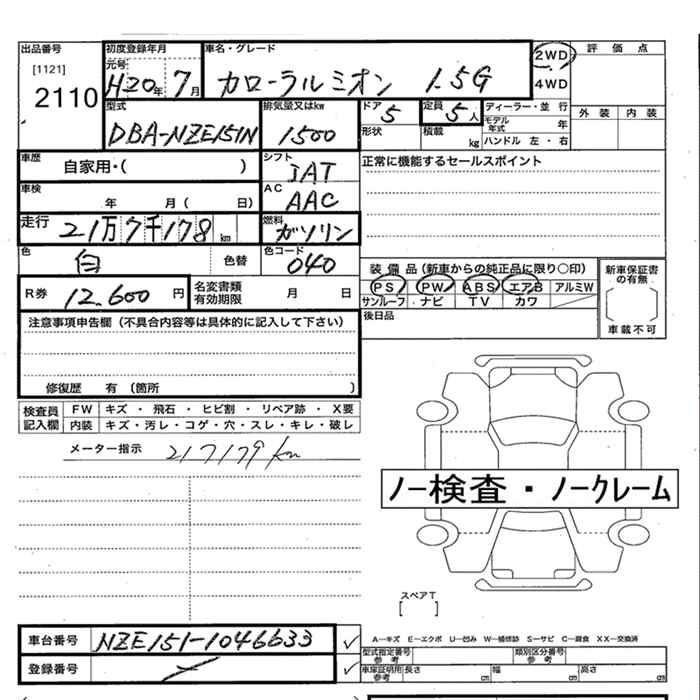 出品番号 初度登録年月 車名・グレード 2WD 評価点
[1121] 元号 4WD
2110 H20年 7月 カローラルミオン 1.5G
型式 排気量又はkw ドア 定員 ディーラー・並行 外装 内装
DBA-NZE151N 1500 5 5人 モデル年式 年
形状 積載 kg ハンドル 左・右
車歴 自家用・( ) シフト IAT 正常に機能するセールスポイント
車検 年 月( 日) AC AAC
走行 21万7千178km 燃料 ガソリン
色 白 色替 色コード 040
装備品(新車からの純正品に限り○印) 新車保証書の有無
R券 12,600円 名変書類有効期限 月 日 PS PW ABS エアB アルミW
サンルーフ ナビ TV カワ
注意事項申告欄(不具合内容等は具体的に記入して下さい) 後日品 車載不可
修復歴 有(箇所 )
検査員記入欄 FW キズ・飛石・ヒビ割・リペア跡・X要
内装 キズ・汚レ・コゲ・穴・スレ・キレ・破レ
メーター指示 217179km
ノー検査・ノークレーム
スペアT
[ ]
車台番号 NZE151-1046633 ✓
A―キズ E―エクボ U―凹み W―補修跡 S―サビ C―腐食 XX―交換済
登録番号 ✓
型式指定番号参考 類別区分番号参考
車庫証明用参考 長さ cm 幅 cm 高さ cm